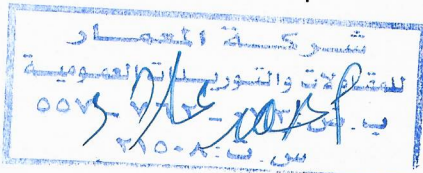 شركة المعمار
للمقاولات والتوريدات العمومية
ب.ض
س.ت: ٢١٥٠٨